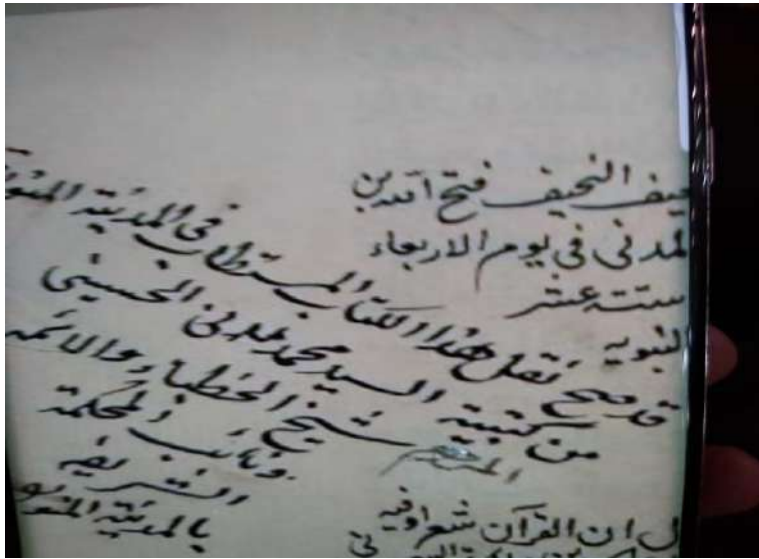 النحيف فتح الله بن
المدنى فى يوم الاربعاء
ستة عشر
النبويه
قد صح نقل هذا الكتاب المستطاب فى المدينة المنو
من كتبية السيد محمد مدنى الحسينى
شيخ الخطباء والائمه
ونائب المحكمة
الشريفه
بالمدينة المنو
ان القرآن شعر او فيه